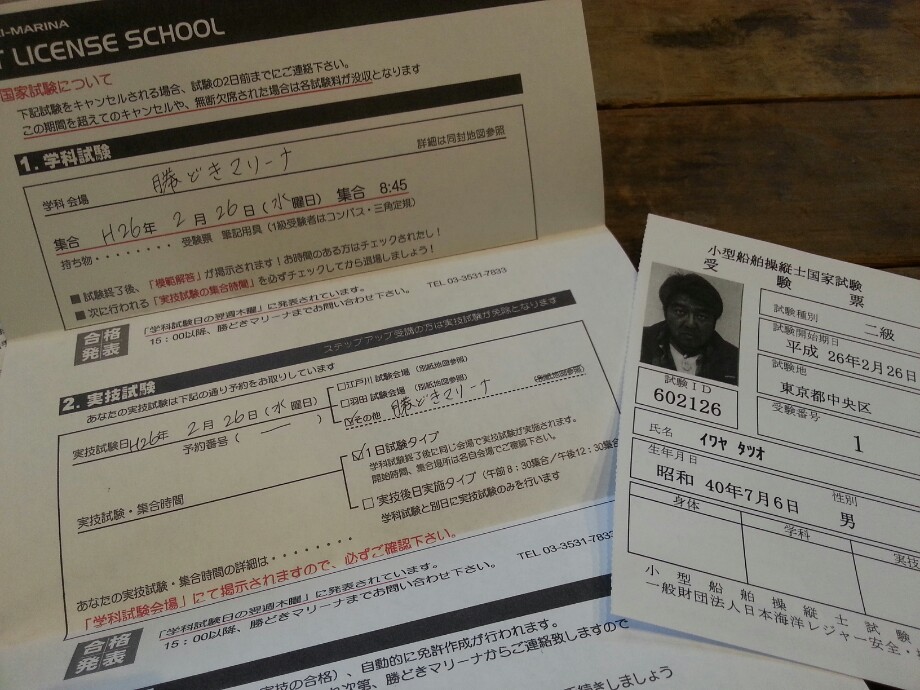 I-MARINA
T LICENSE SCHOOL
国家試験について
下記試験をキャンセルされる場合、試験の2日前までにご連絡下さい。
この期間を超えてのキャンセルや、無断欠席された場合は各試験料が没収となります
1. 学科試験
詳細は同封地図参照
学科 会場 勝どきマリーナ
集合 H26年 2月 26日(水曜日) 集合 8:45
持ち物・・・・・・・・ 受験票 筆記用具(1級受験者はコンパス・三角定規)
■試験終了後、「模範解答」が掲示されます!お時間のある方はチェックされたし!
■次に行われる「実技試験の集合時間」を必ずチェックしてから退場しましょう!
合格発表
「学科試験日の翌週木曜」に発表されています。 TEL 03-3531-7833
15:00以降、勝どきマリーナまでお問い合わせ下さい。
ステップアップ受講の方は実技試験が免除となります
2. 実技試験
あなたの実技試験は下記の通り予約をお取りしています
□江戸川 試験会場(別紙地図参照)
□羽田 試験会場(別紙地図参照)
☑その他 勝どきマリーナ (別紙地図参照)
実技試験日 H26年 2月 26日(水曜日)
予約番号( ― )
☑1日試験タイプ
学科試験終了後に同じ会場で実技試験が実施されます。
開始時間、集合場所は各自会場でご確認下さい。
□実技後日実施タイプ(午前8:30集合/午後12:30集合
学科試験と別日に実技試験のみを行います
実技試験・集合時間
あなたの実技試験・集合時間の詳細は・・・・・・・・
「学科試験会場」にて掲示されますので、必ずご確認下さい。
合格発表
「学科試験日の翌週木曜」に発表されています。 TEL 03-3531-7833
15:00以降、勝どきマリーナまでお問い合わせ下さい。
実技の合格)、自動的に免許作成が行われます。
次第、勝どきマリーナからご連絡致しますので
続きしましょう
小型船舶操縦士国家試験
受験票
試験種別 二級
試験開始期日
平成 26年2月26日
試験地
東京都中央区
受験番号
1
試験ID
602126
氏名 イワヤ タツオ
生年月日 性別
昭和 40年7月6日 男
身体 学科 実技
小型船舶操縦士試験
一般財団法人日本海洋レジャー安全・